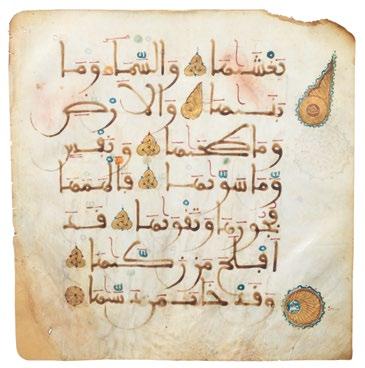 يغشيها والسماء وما
بنيها والارض
وما طحيها ونفس
وما سويها فالهمها
فجورها وتقويها قد
افلح من زكيها
وقد خاب من دسيها